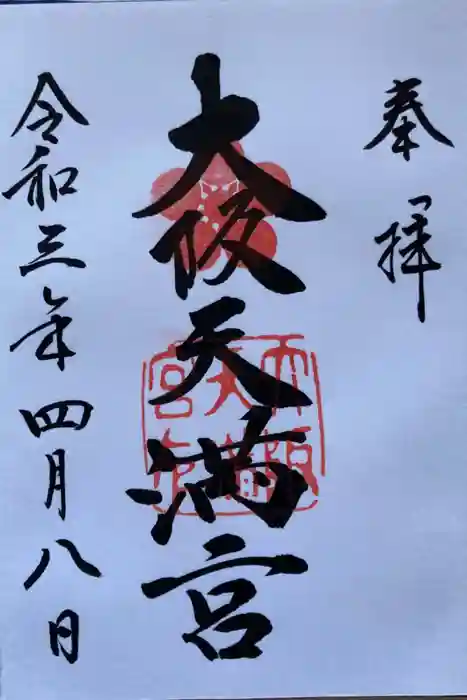 奉拝
大阪天満宮
大阪
天満
宮印
令和三年四月八日